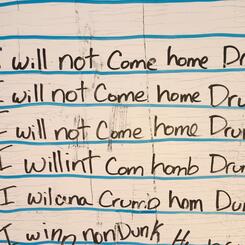 I will not Come home Dr
I will not Come home Dru
I will not Come home Drun
I Willint Com homb Drun
I wilana Crumb hom Dun
I wino nonDunk